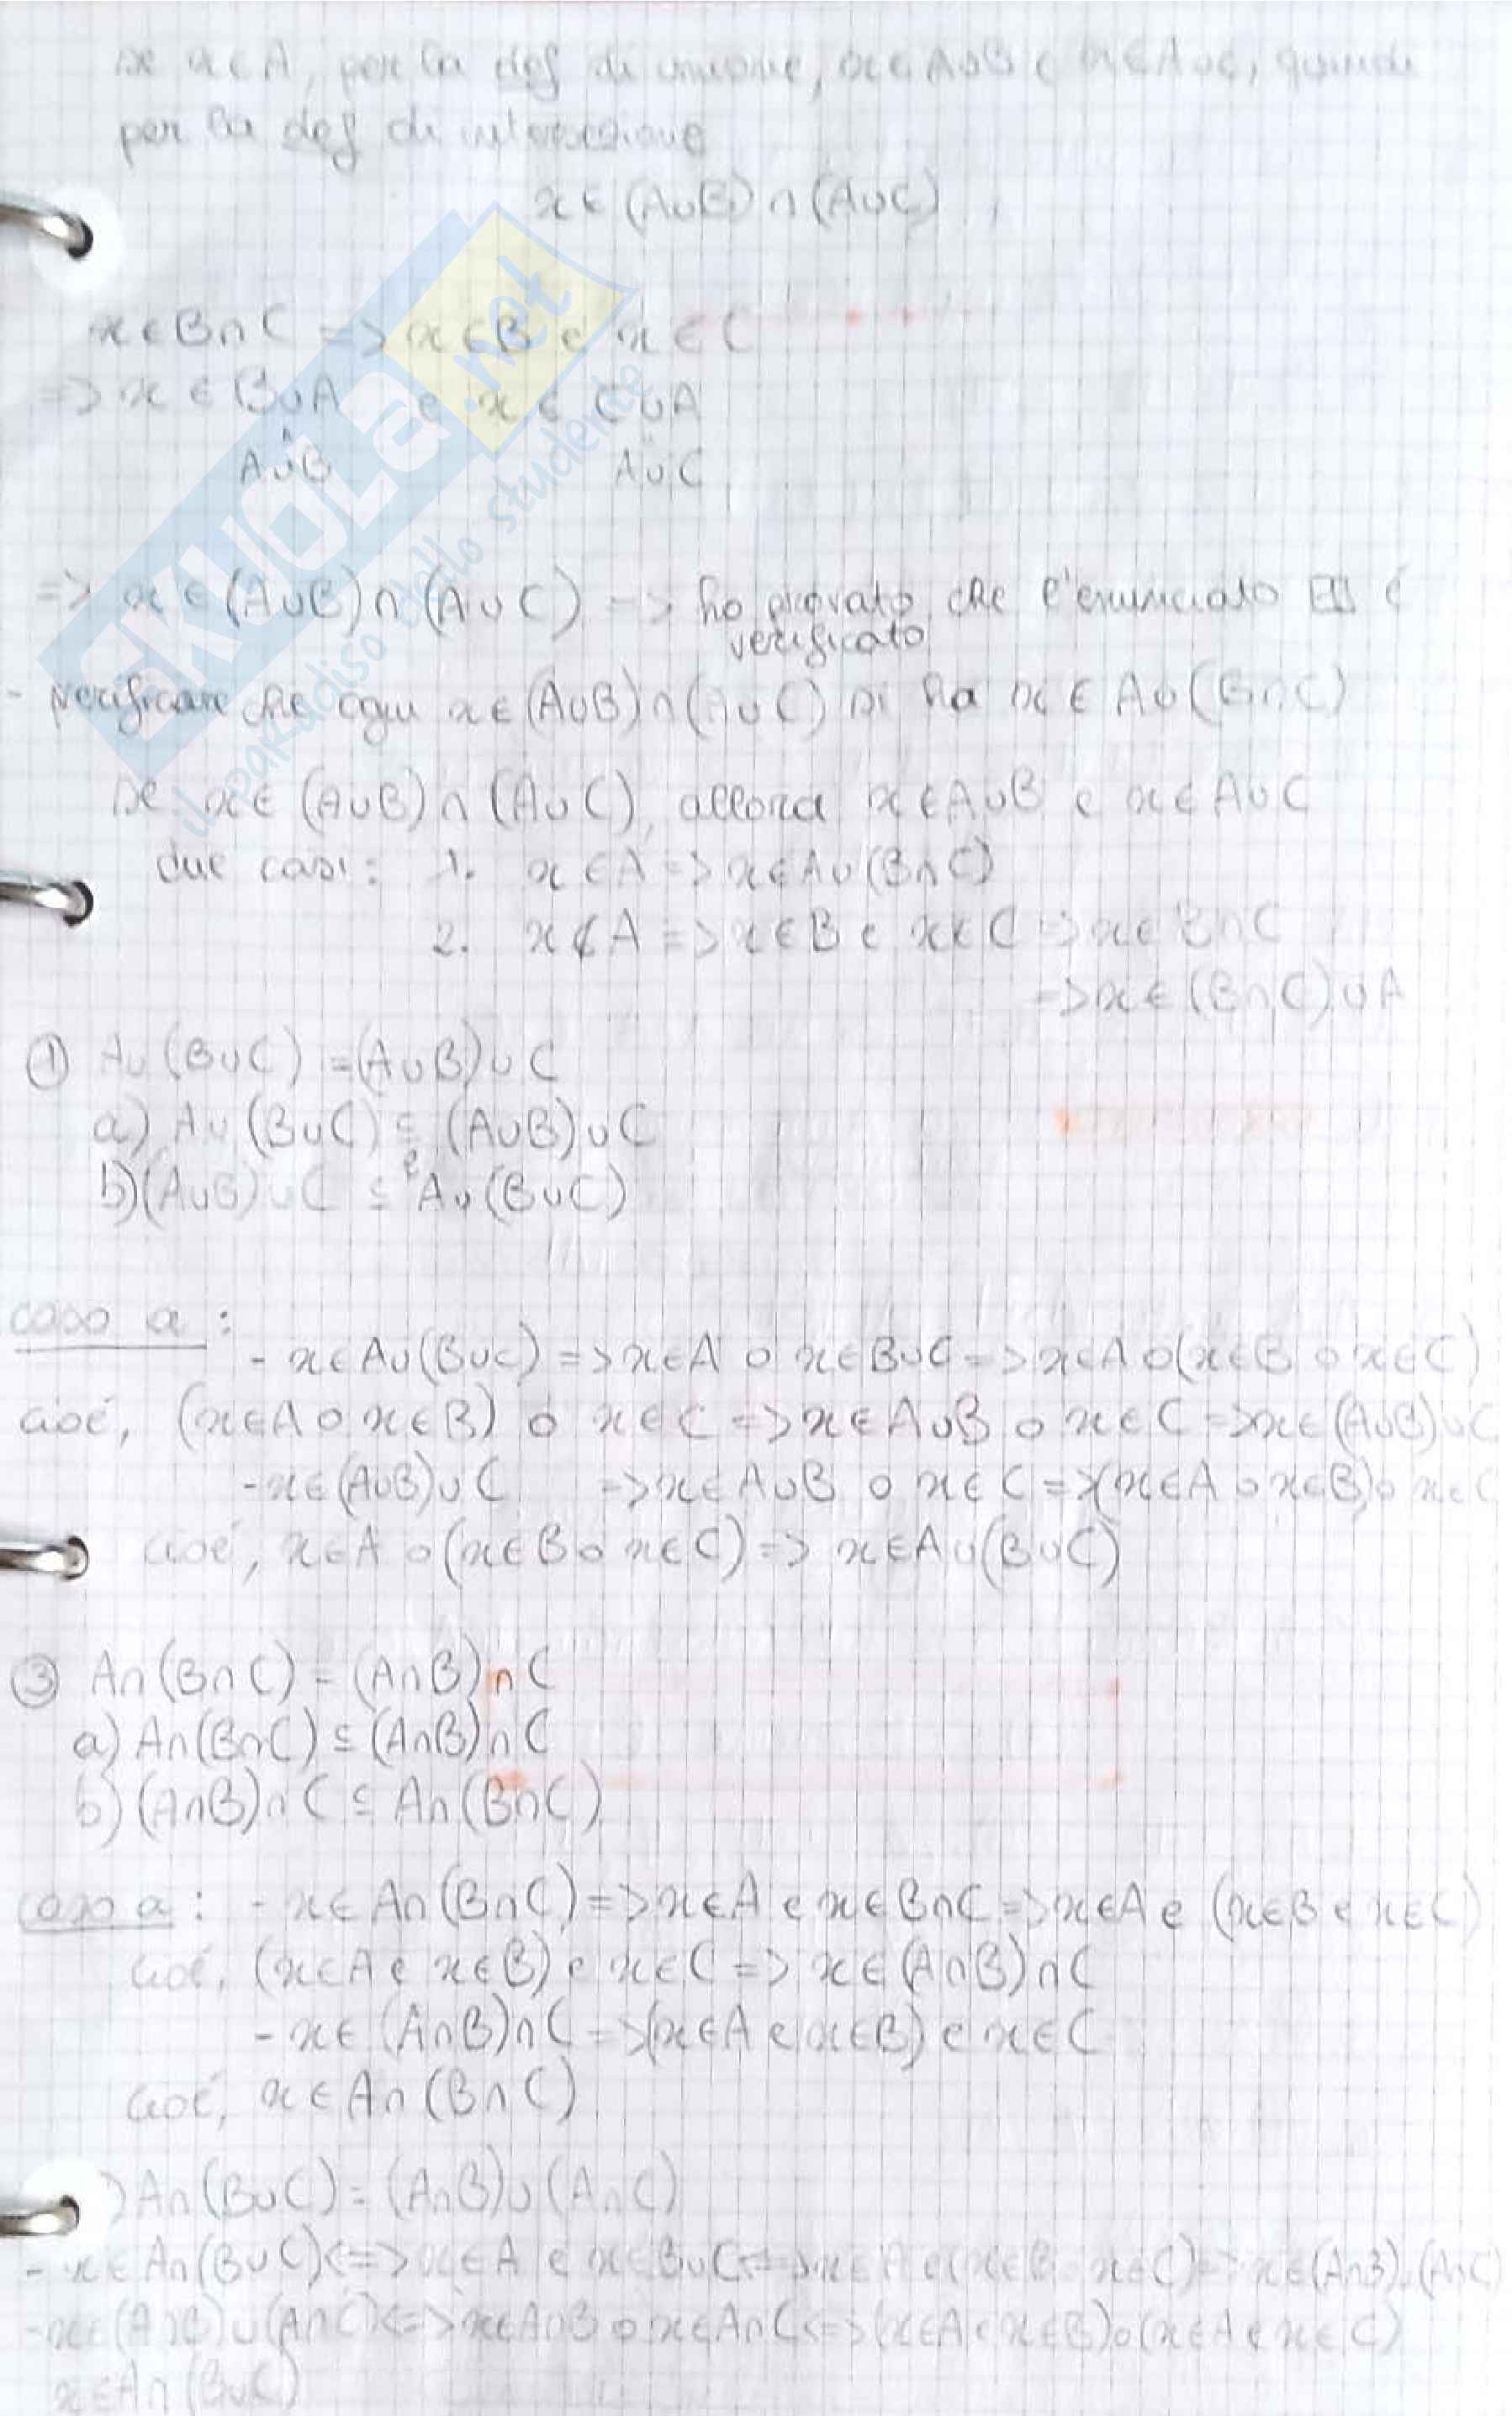 se x∈A, per la def di unione, x∈A∪B e x∈A∪C, quindi
per la def di intersezione
x∈(A∪B)∩(A∪C)
x∈B∩C => x∈B e x∈C
=> x∈B∪A e x∈C∪A
A∪B A∪C
=> x∈(A∪B)∩(A∪C) => ho provato che l'enunciato è
verificato
- verificare che ogni x∈(A∪B)∩(A∪C) si ha x∈A∪(B∩C)
se x∈(A∪B)∩(A∪C), allora x∈A∪B e x∈A∪C
due casi: 1. x∈A => x∈A∪(B∩C)
2. x∉A => x∈B e x∈C => x∈B∩C
=> x∈(B∩C)∪A
① A∪(B∪C) = (A∪B)∪C
a) A∪(B∪C) ⊆ (A∪B)∪C
e
b) (A∪B)∪C ⊆ A∪(B∪C)
caso a:
- x∈A∪(B∪C) => x∈A o x∈B∪C => x∈A o (x∈B o x∈C)
cioé, (x∈A o x∈B) o x∈C => x∈A∪B o x∈C => x∈(A∪B)∪C
- x∈(A∪B)∪C => x∈A∪B o x∈C => (x∈A o x∈B) o x∈C
cioé, x∈A o (x∈B o x∈C) => x∈A∪(B∪C)
③ A∩(B∩C) = (A∩B)∩C
a) A∩(B∩C) ⊆ (A∩B)∩C
b) (A∩B)∩C ⊆ A∩(B∩C)
caso a: - x∈A∩(B∩C) => x∈A e x∈B∩C => x∈A e (x∈B e x∈C)
cioé, (x∈A e x∈B) e x∈C => x∈(A∩B)∩C
- x∈(A∩B)∩C => (x∈A e x∈B) e x∈C
cioé, x∈A∩(B∩C)
) A∩(B∪C) = (A∩B)∪(A∩C)
- x∈A∩(B∪C) <=> x∈A e x∈B∪C <=> x∈A e (x∈B x∈C) => x∈(A∩B)∪(A∩C)
- x∈(A∩B)∪(A∩C) <=> x∈A∩B o x∈A∩C <=> (x∈A e x∈B) o (x∈A e x∈C)
x∈A∩(B∪C)
SKUOLA.net
il paradiso dello studente